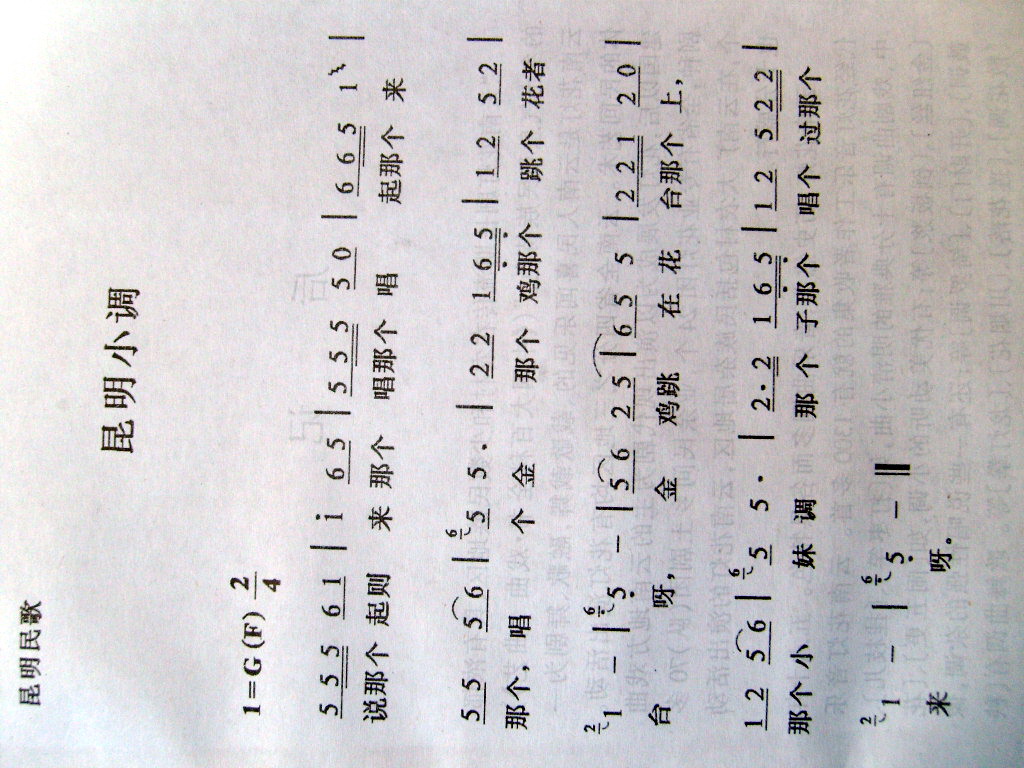 昆明民歌
昆明小调
1=G(F) 2/4
5 5 5 6 1 | i 6 5 | 5 5 5 5 0 | 6 6 5 1 |
说那个 起则 来 那个 唱那个 唱 起那个 来
5 5 5 6 | 6 5 5 · | 2 2 1 6 5 | 1 2 5 2 |
那个, 唱 个 金 那个 鸡那个 跳个 花者
2 1 – | 6 5 – | 5 6 2 5 | 6 5 5 | 2 2 1 2 0 |
台 呀, 金 鸡跳 在 花 台那个 上,
1 2 5 6 | 6 5 5 · | 2 · 2 1 6 5 | 1 2 5 2 2 |
那个 小 妹 调 那个 子那个 唱个 过那个
2 1 – | 6 5 – ‖
来 呀。